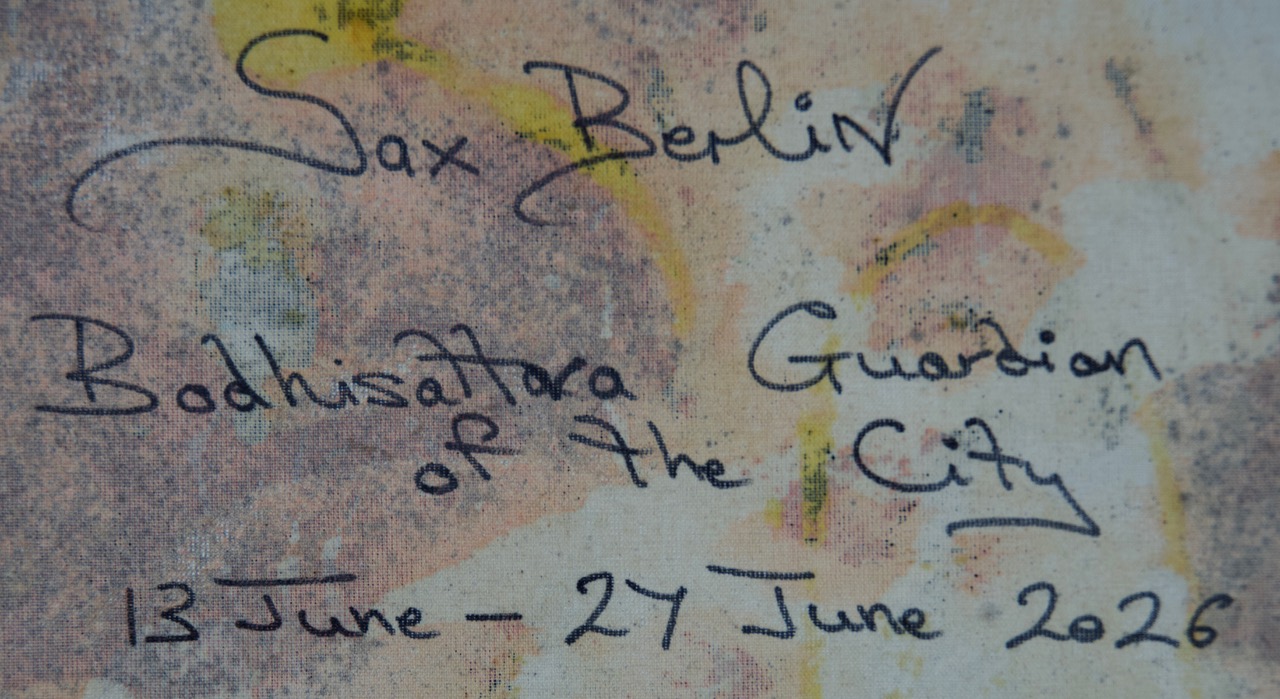 Sax Berlin
Bodhisattava Guardian
of the City
13 June – 27 June 2026